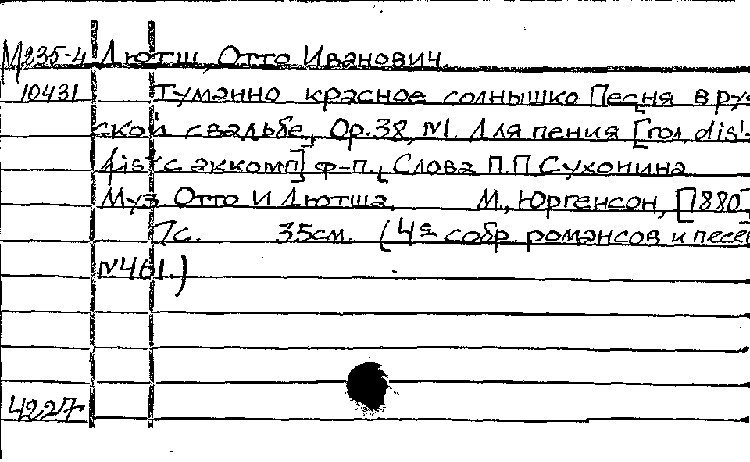 М235-4 Лютш, Отто Иванович.
10431 Туманно красное солнышко Песня в рус
ской свадьбе, Ор.38, №1. Для пения [гол. dis'-
dis² с аккомп] ф-п., Слова П.П Сухонина
Муз Отто И Лютша. М., Юргенсон, [1880]
7с. 35см. (4е собр. романсов и песен
№461.)
4227